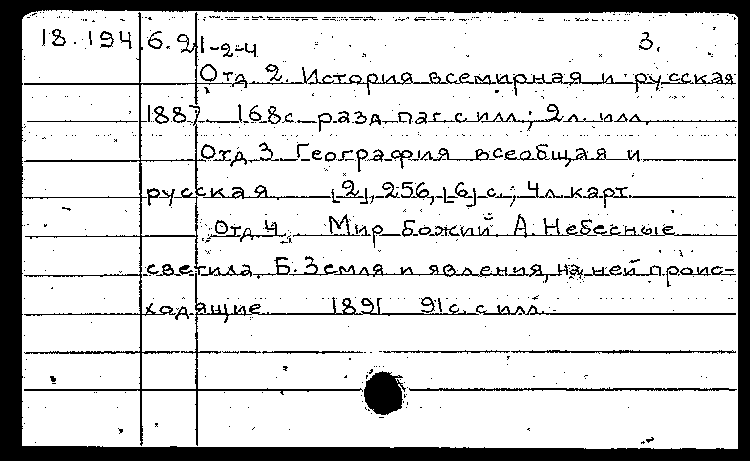 18.194.6.2 1-2-4 3.
Отд. 2. История всемирная и русская
1887 168с. разд. паг. с илл.; 2л. илл.
Отд 3 География всеобщая и
русская [2], 256, [6] с.; 4л карт.
Отд 4. Мир Божий. А. Небесные
светила. Б. Земля и явления, на ней проис-
ходящие 1891 91с. с илл.